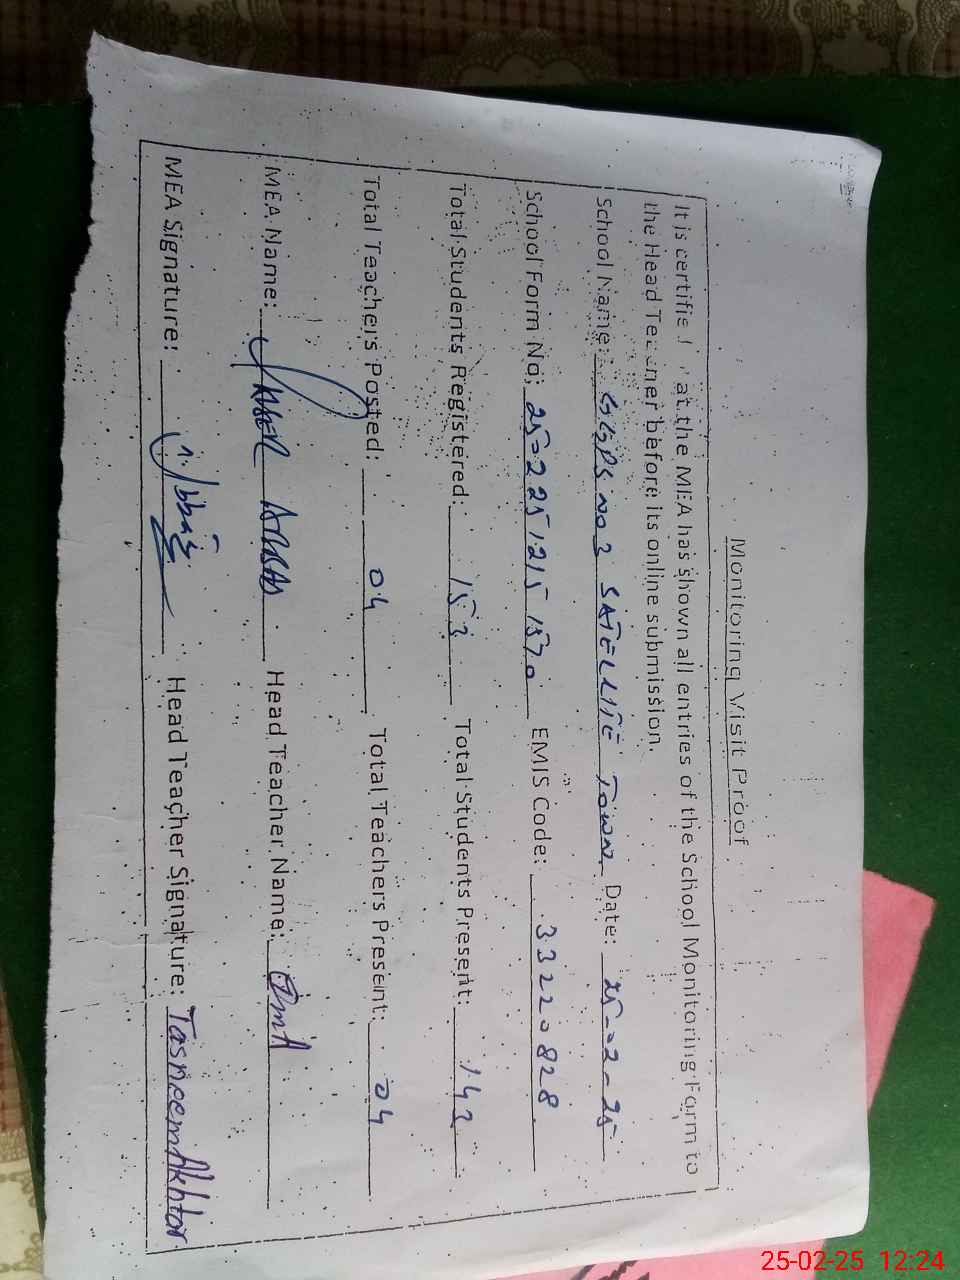 Monitoring Visit Proof
It is certified that the MEA has shown all entries of the School Monitoring Form to
the Head Teacher before its online submission.
School Name: GGPS NO 2 SATELLITE TOWN Date: 25-02-25
School Form No: 25022512151570 EMIS Code: 33220828
Total Students Registered: 152 Total Students Present: 142
Total Teachers Posted: 04 Total Teachers Present: 04
MEA Name: YASER ABBAS Head Teacher Name:
MEA Signature: Head Teacher Signature: Tasneem Akhtar
25-02-25 12:24